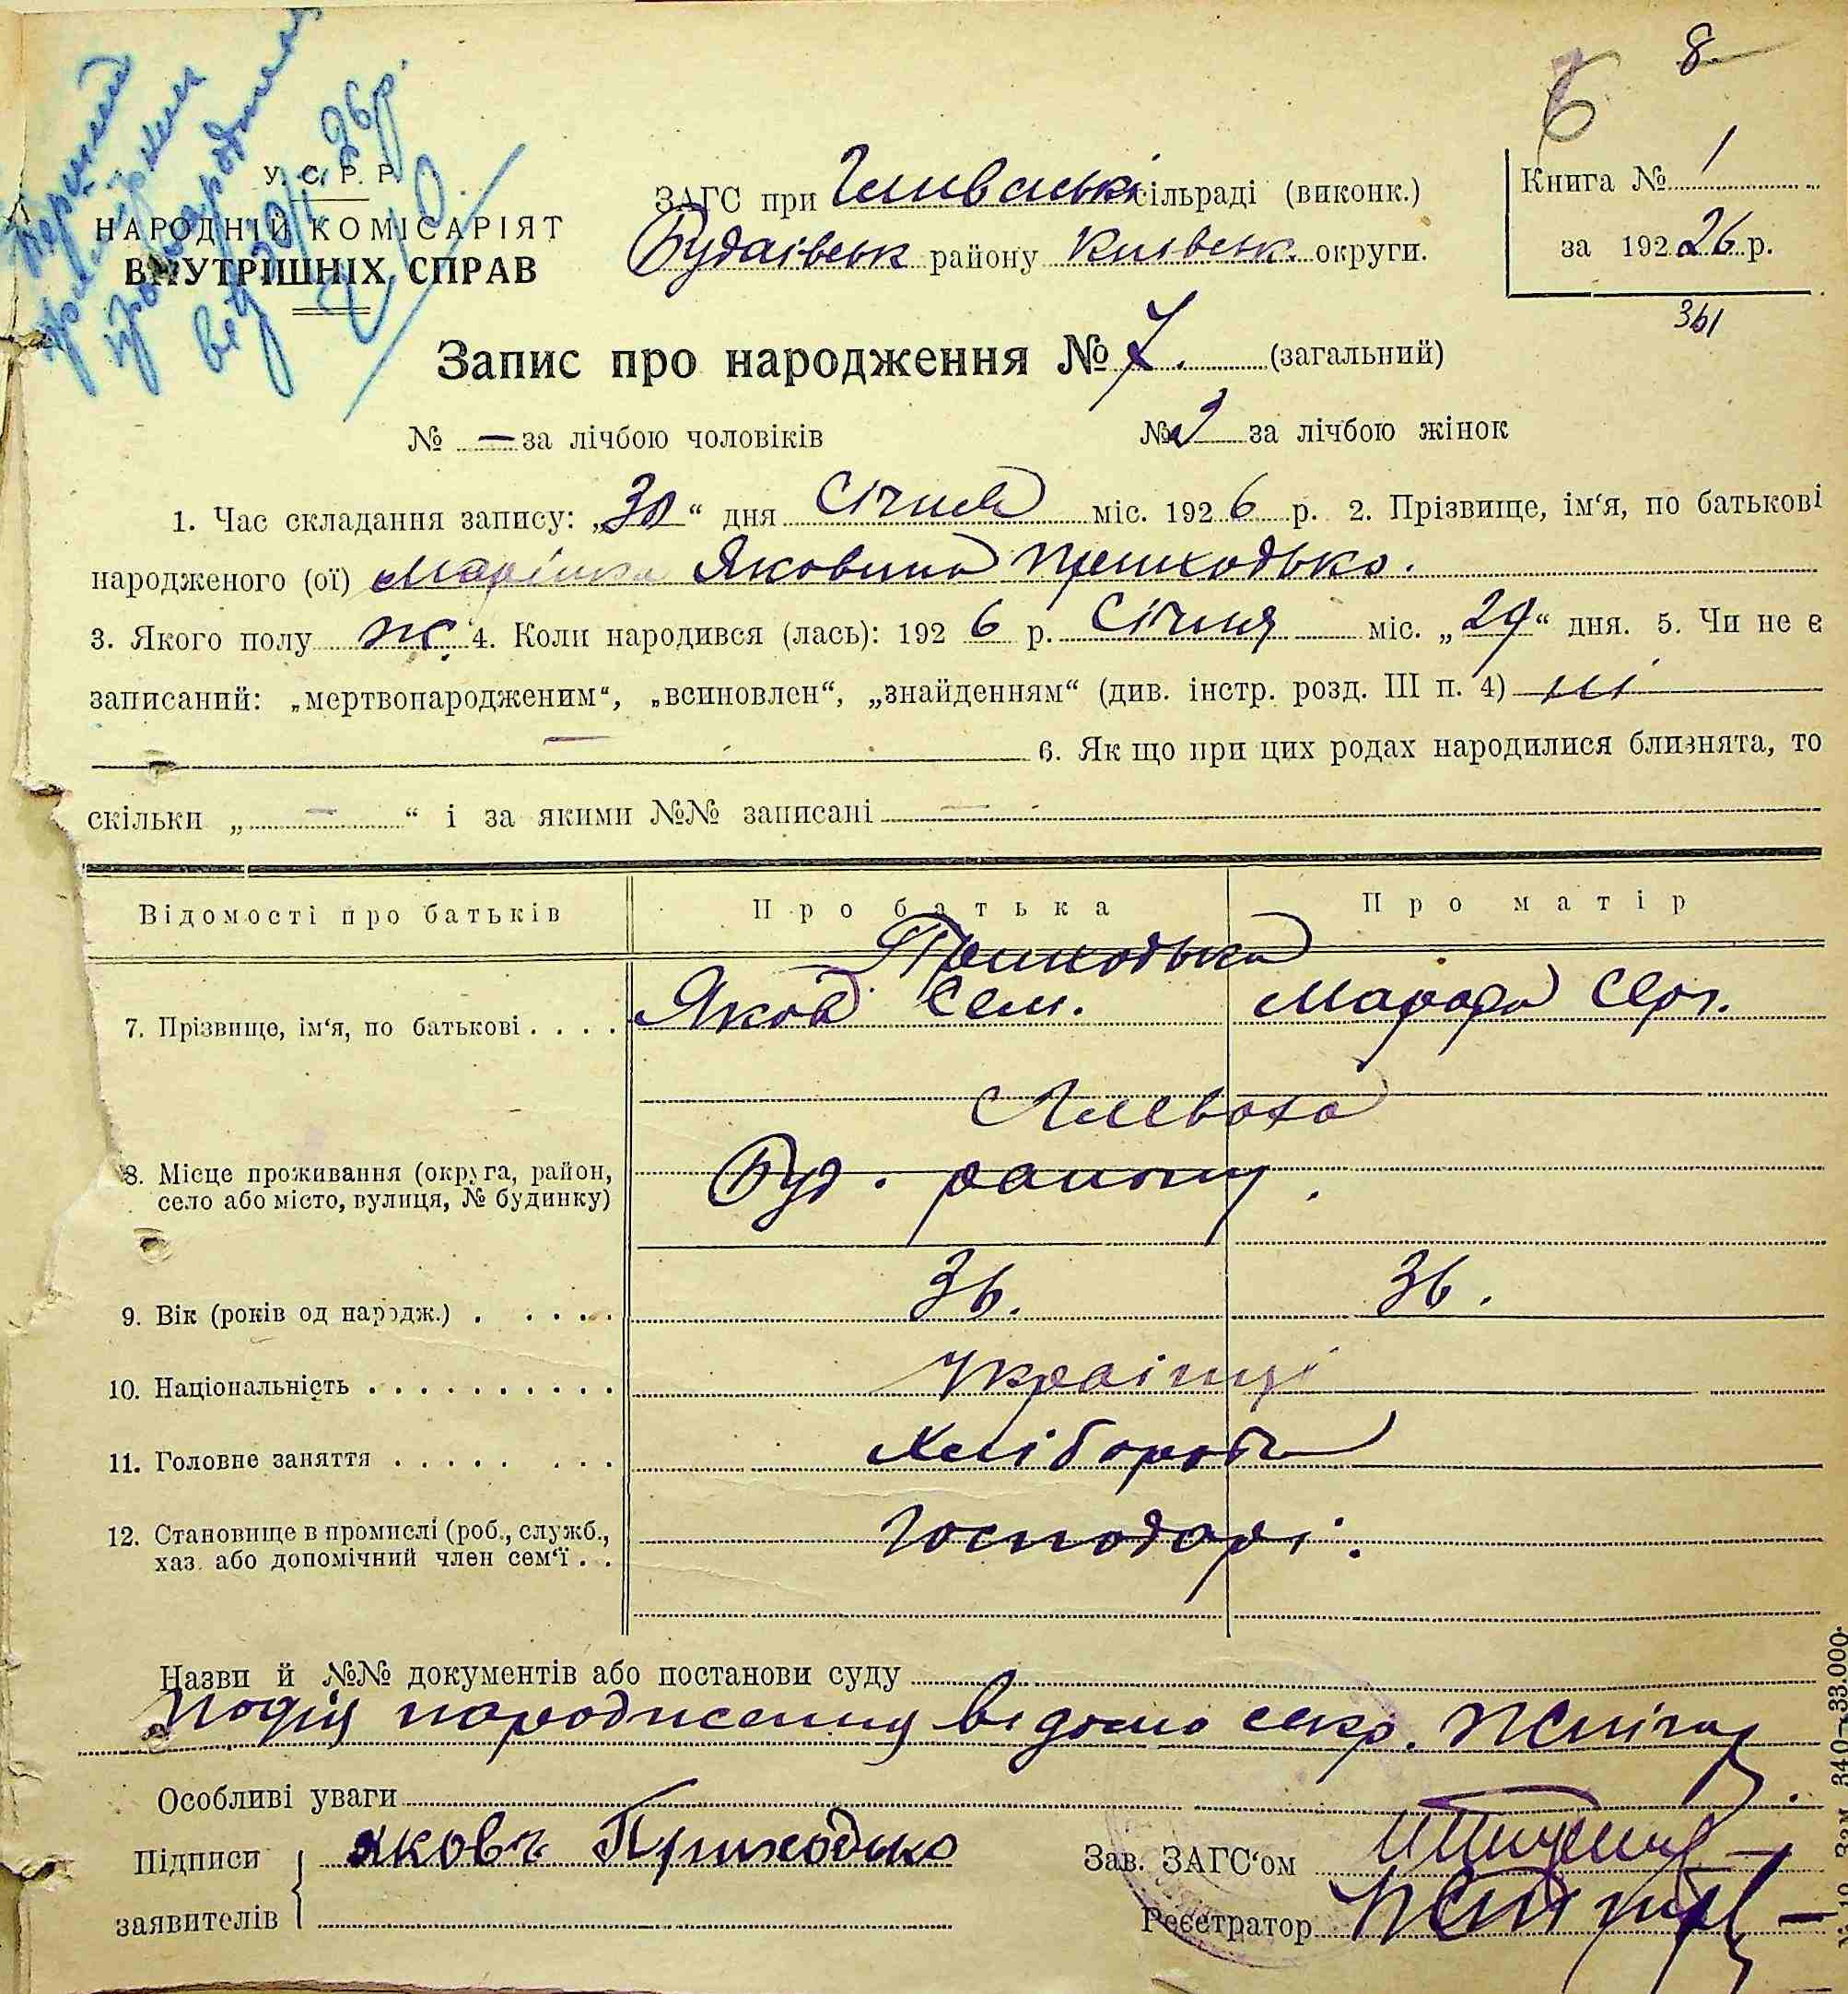 8
6
У. С. Р. Р.
НАРОДНІЙ КОМІСАРІЯТ
ВНУТРІШНІХ СПРАВ
ЗАГС при сільраді (виконк.)
Будаївськ району Київськ. округи.
Книга № 1
за 192 26 р.
361
Запис про народження № 7. (загальний)
№ — за лічбою чоловіків № 2 за лічбою жінок
1. Час складання запису: „30“ дня Січня міс. 192 6 р. 2. Прізвище, ім‘я, по батькові
народженого (ої) Яковина Приходько.
3. Якого полу ж. 4. Коли народився (лась): 192 6 р. Січня міс. „29“ дня. 5. Чи не є
записаний: „мертвонародженим“, „всиновлен“, „знайденням“ (див. інстр. розд. III п. 4) ні
— 6. Як що при цих родах народилися близнята, то
скільки „ — “ і за якими №№ записані —
Відомості про батьків Про батька Про матір
Приходька
7. Прізвище, ім‘я, по батькові . . . . Яков Сем. Серг.
8. Місце проживання (округа, район,
село або місто, вулиця, № будинку)
Буд. району.
9. Вік (років од народж.) . . . . . 36. 36.
10. Національність . . . . . . . . . . Українці
11. Головне заняття . . . . . . . . Хлібороби
12. Становище в промислі (роб., служб.,
хаз. або допомічний член сем‘ї . . Господарі.
Назви й №№ документів або постанови суду
Подія народження відомо секр.
Особливі уваги
Підписи Яковъ Приходько Зав. ЗАГС‘ом
заявителів Реєстратор
340—33.000.